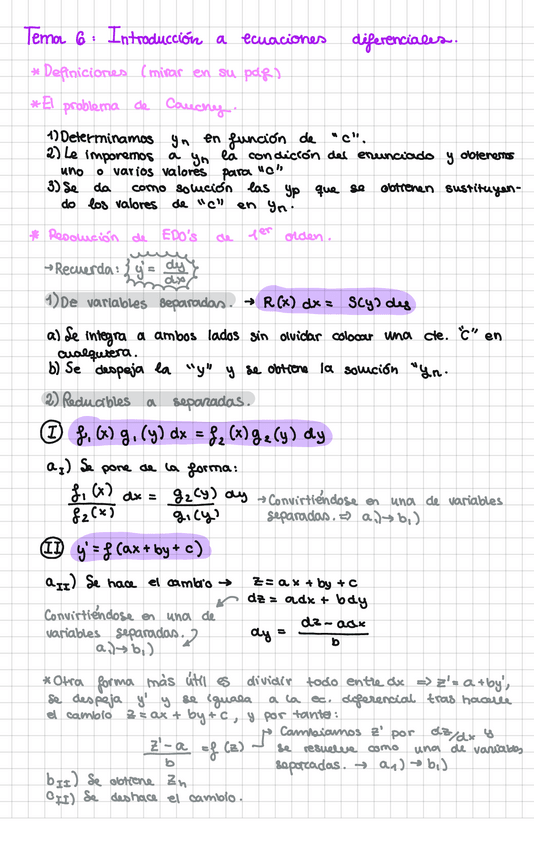 Tema 6: Introducción a ecuaciones diferenciales.
* Definiciones (mirar en su pdf)
* El problema de Cauchy.
1) Determinamos yn en función de "c".
2) Le imponemos a yn la condición del enunciado y obtenemos
uno o varios valores para "c"
3) Se da como solución las yp que se obtienen sustituyen-
do los valores de "c" en yn.
* Resolución de EDO's de 1er orden.
→ Recuerda: { y' = dy/dx }
1) De variables separadas. → R(x) dx = S(y) dy
a) Se integra a ambos lados sin olvidar colocar una cte. "c" en
cualquiera.
b) Se despeja la "y" y se obtiene la solución "yn.
2) Reducibles a separadas.
I f1(x) g1(y) dx = f2(x) g2(y) dy
aI) Se pone de la forma:
f1(x)/f2(x) dx = g2(y)/g1(y) dy → Convirtiéndose en una de variables
separadas. ⇒ a1) → b1)
II y' = f(ax+by+c)
aII) Se hace el cambio → z = ax + by + c
dz = adx + bdy
Convirtiéndose en una de
variables separadas.
a1) → b1)
dy = dz - adx / b
* Otra forma más útil es dividir todo entre dx ⇒ z' = a + by',
se despeja y' y se iguala a la ec. diferencial tras hacerle
el cambio z = ax + by + c, y por tanto:
z' - a / b = f(z) → Cambiamos z' por dz/dx y
se resuelve como una de variables
separadas. → a1) → b1)
bII) Se obtiene zn
cII) Se deshace el cambio.